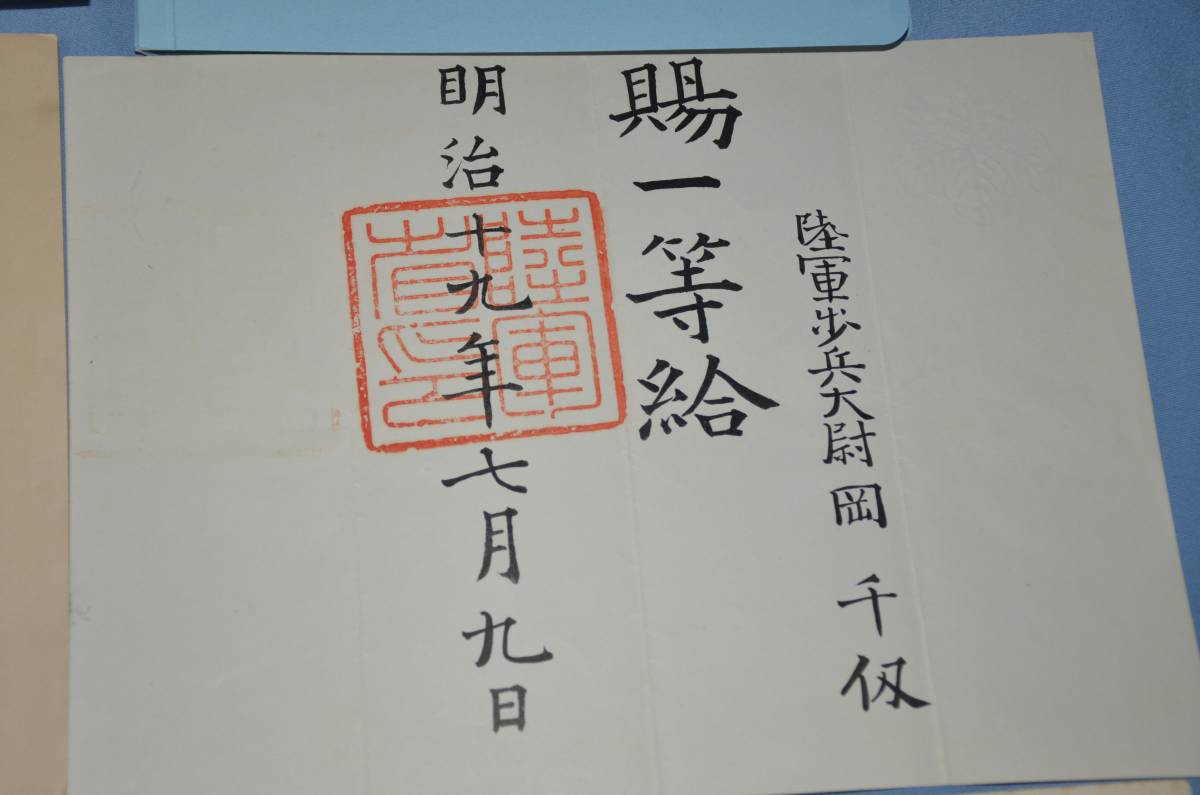 陸軍歩兵大尉岡 千仭
賜一等給
明治十九年七月九日
陸軍省印